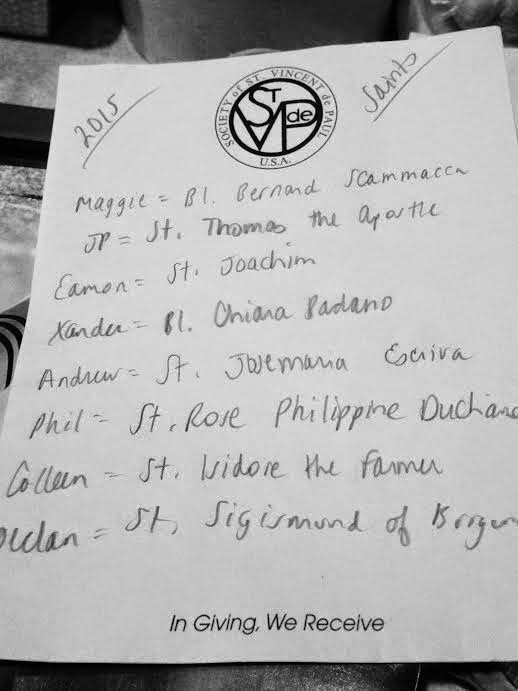 2015
Saints
SOCIETY OF ST. VINCENT de PAUL
St
V de P
U.S.A.
Maggie = Bl. Bernard Scammacca
JP = St. Thomas the Apostle
Eamon = St. Joachim
Xander = Bl. Chiara Badano
Andrew = St. Josemaria Escriva
Phil = St. Rose Philippine Duchane
Colleen = St. Isidore the Farmer
Declan = St. Sigismund of
In Giving, We Receive